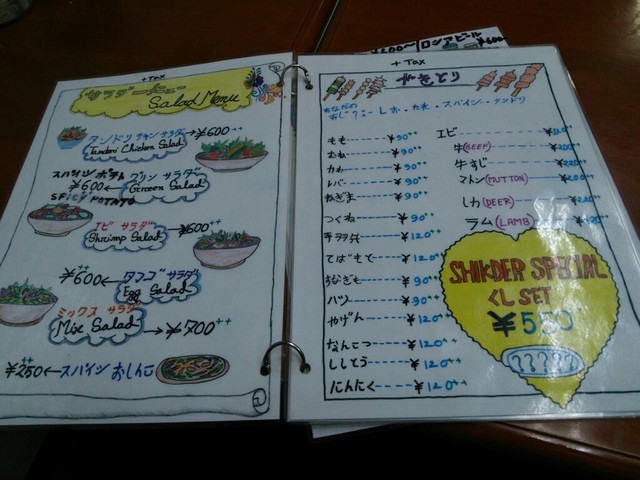 + Tax
サラダーメニュー
Salad Menu
タンドリ チキン サラダ → ¥600++
Tandori Chicken Salad
スパイシ ポテト
SPICY POTATO
¥600++ ← グリン サラダ
Green Salad
エビ サラダ → ¥600++
Shrimp Salad
¥600++ ← タマゴ サラダ
Egg Salad
ミックス サラダ
Mix Salad → ¥700++
¥250++ ← スパイシ おしんこ
ロシアビール
¥600~
+ Tax
やきとり
しお・たれ・スパイシ・タンドリ
もも ¥90++
むね ¥90++
かわ ¥90++
レバー ¥90++
ねぎま ¥90++
つくね ¥90++
¥120++
てばもと ¥120++
¥90++
ハツ ¥90++
やげん ¥120++
なんこつ ¥120++
ししとう ¥120++
にんにく ¥120++
エビ
牛(BEEF)
牛すじ
マトン(MUTTON)
しカ(DEER)
ラム(LAMB)
SHIKDER SPECIAL
くし SET
¥550
?????